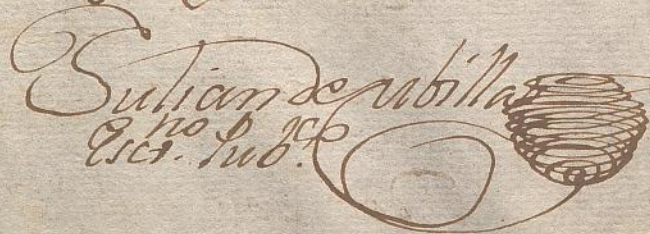 Julian de cubillas
Escrno. Pubco.